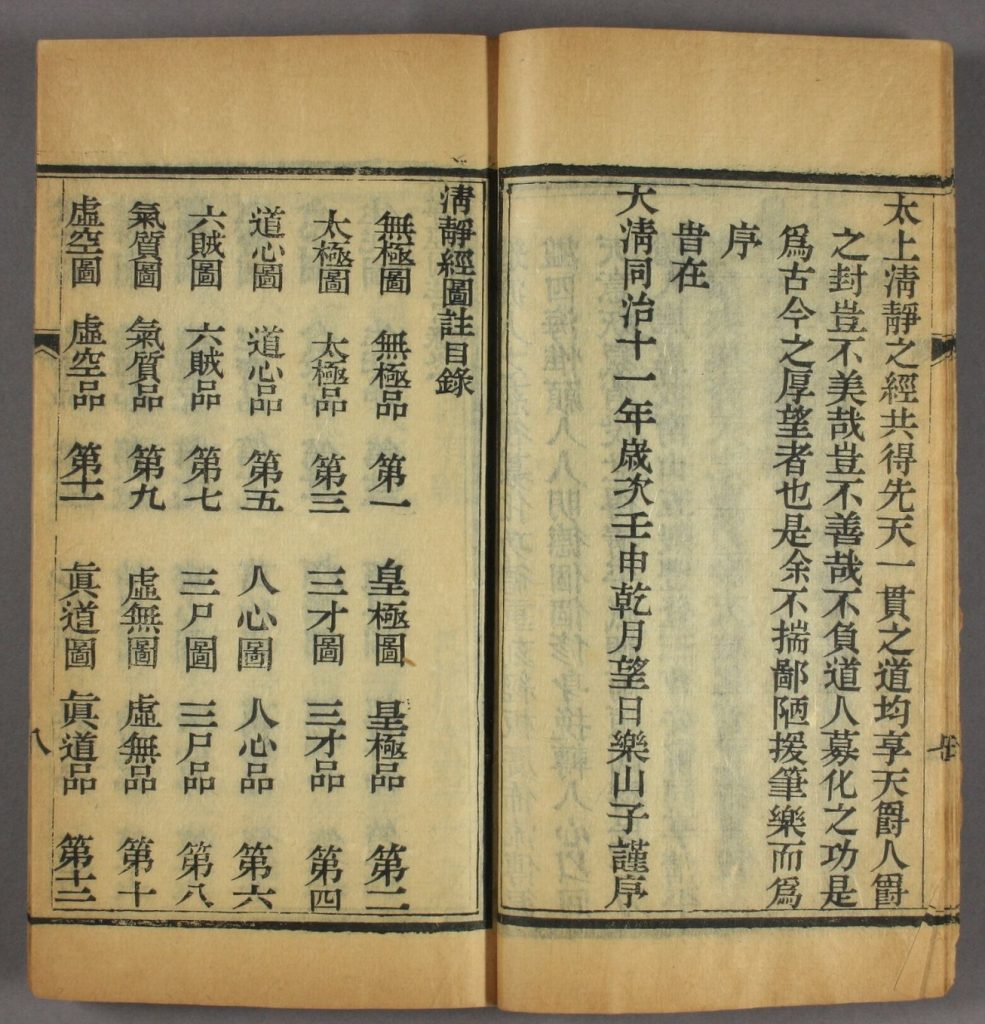 太上淸靜之經共得先天一貫之道均享天爵人爵
之封豈不美哉豈不善哉不負道人募化之功是
爲古今之厚望者也是余不揣鄙陋援筆樂而爲
序
昔在
大淸同治十一年歲次壬申乾月望日樂山子謹序
淸靜經圖註目錄
無極圖 無極品 第一 皇極圖 皇極品 第二
太極圖 太極品 第三 三才圖 三才品 第四
道心圖 道心品 第五 人心圖 人心品 第六
六賊圖 六賊品 第七 三尸圖 三尸品 第八
氣质圖 氣质品 第九 虛無圖 虛無品 第十
虛空圖 虛空品 第十一 眞道圖 眞道品 第十二
八